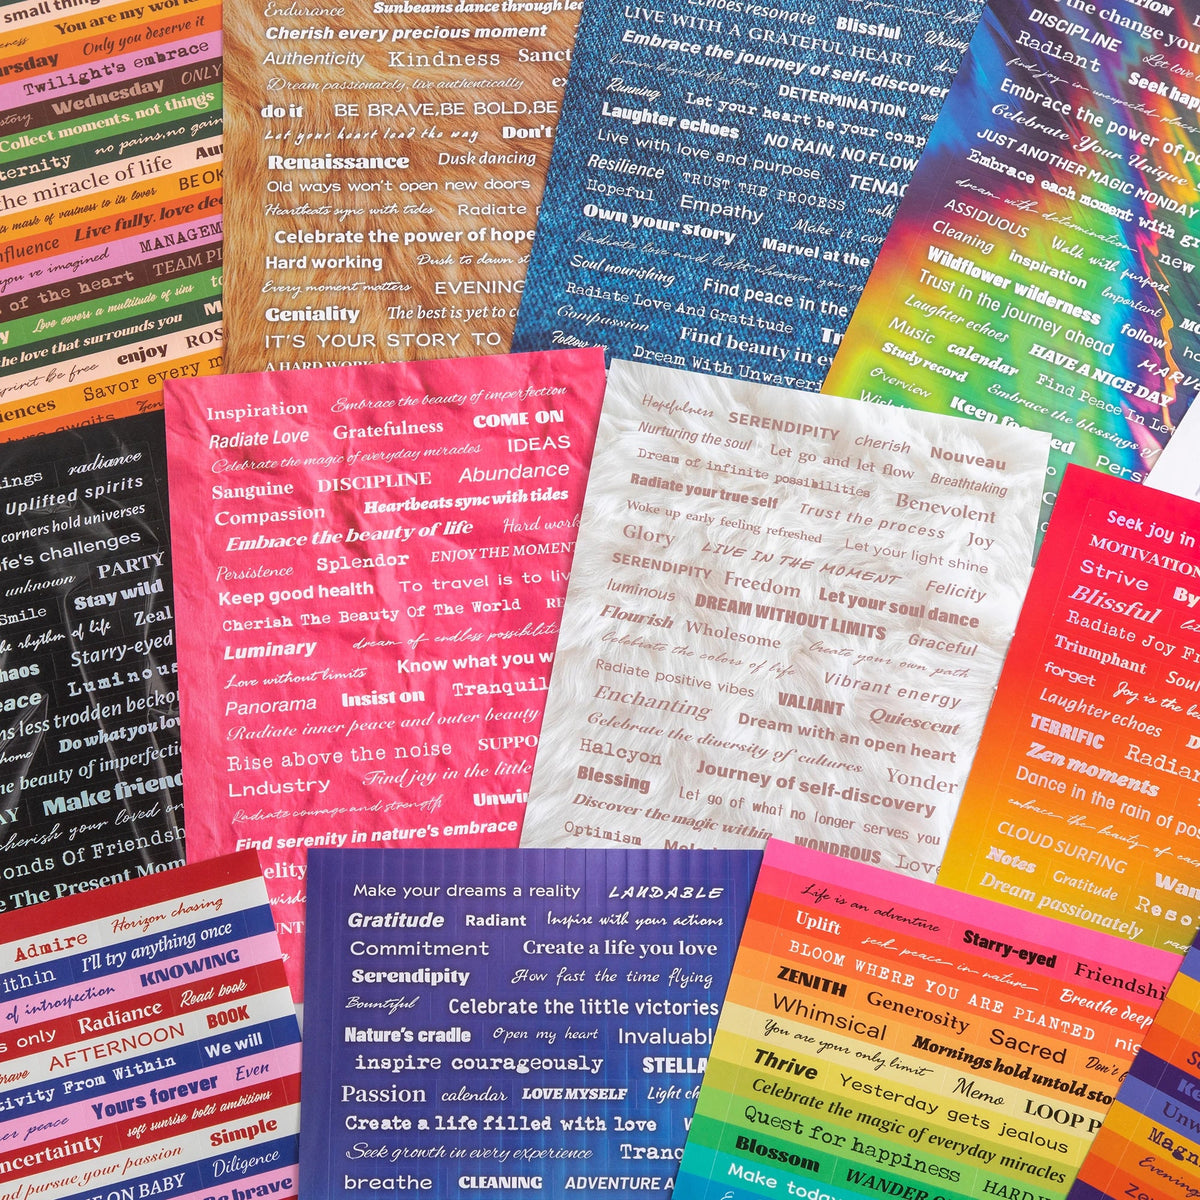 small things
You are my wor
Only you deserve it
ursday
Twilight's embrace
Wednesday ONLY
story Collect moments, not things
ternity no pains,no gain
the miracle of life Au
mark of vastness to its lover BE OK
nfluence Live fully, love dee
you've imagined MANAGEM
of the heart TEAM PL
Love covers a multitude of sins to
the love that surrounds you M
spirit be free enjoy ROS
iences Savor every m
Endurance Sunbeams dance through lea
Cherish every precious moment
Authenticity Kindness Sanct
Dream passionately, live authentically ex
do it BE BRAVE,BE BOLD,BE
Let your heart lead the way Don't
Renaissance Dusk dancing
Old ways won't open new doors
Heartbeats sync with tides Radiate
Celebrate the power of hope
Hard working Dusk to dawn st
Every moment matters EVENING
Geniality The best is yet to c
IT'S YOUR STORY TO
A HARD WORK
Echoes resonate Blissful Writing
LIVE WITH A GRATEFUL HEART
Embrace the journey of self-discover
Running DETERMINATION
Let your heart be your comp
Laughter echoes NO RAIN, NO FLOW
Live with love and purpose TENAC
Resilience TRUST THE PROCESS walk
Hopeful Empathy Make it com
Own your story Marvel at the
Radiate love and light wherever you go
Soul nourishing Find peace in the
Radiate Love And Gratitude
Compassion Find beauty in ev
Follow Dream With Unwaveri
the change you
DISCIPLINE Let love
Radiant Seek hap
find joy in unexpected places
Embrace the power of po
Celebrate Your Unique
JUST ANOTHER MAGIC MONDAY
Embrace each moment with gr
dream with determination new
ASSIDUOUS Walk with purpose
Cleaning inspiration Important
Wildflower wilderness follow
Trust in the journey ahead
Laughter echoes HAVE A NICE DAY
Music calendar Find Peace In Let
Study record Embrace the blessings of
Overview Keep focused Persi
ings radiance
Uplifted spirits
corners hold universes
ife's challenges
unknown PARTY
Smile Stay wild
the rhythm of life Zeal
haos Starry-eyed
eace Luminous
ns less trodden beckon
home Do what you lov
he beauty of imperfectio
AY Make friend
cherish your loved on
onds Of Friendsh
e The Present Mom
Inspiration Embrace the beauty of imperfection
Radiate Love Gratefulness COME ON
Celebrate the magic of everyday miracles IDEAS
Sanguine DISCIPLINE Abundance
Compassion Heartbeats sync with tides
Embrace the beauty of life Hard work
Persistence Splendor ENJOY THE MOMENT
Keep good health To travel is to liv
Cherish The Beauty Of The World RE
Luminary dream of endless possibilitie
Love without limits Know what you w
Panorama Insist on Tranquil
Radiate inner peace and outer beauty
Rise above the noise SUPPO
Lndustry Find joy in the little
Radiate courage and strength Unwin
Find serenity in nature's embrace
Hopefulness SERENDIPITY cherish Nouveau
Nurturing the soul Let go and let flow Breathtaking
Dream of infinite possibilities Benevolent
Radiate your true self Trust the process Joy
Woke up early feeling refreshed Let your light shine
Glory LIVE IN THE MOMENT Felicity
SERENDIPITY Freedom Let your soul dance
luminous DREAM WITHOUT LIMITS Graceful
Flourish Wholesome Create your own path
Celebrate the colors of life Vibrant energy
Radiate positive vibes VALIANT Quiescent
Enchanting Dream with an open heart
Celebrate the diversity of cultures Yonder
Halcyon Journey of self-discovery
Blessing Let go of what no longer serves you
Discover the magic within WONDROUS Love
Optimism
Seek joy in
MOTIVATION
Strive By
Blissful
Radiate Joy Fr
Triumphant Sou
forget Joy is the b
Laughter echoes
TERRIFIC Radian
Zen moments
Dance in the rain of pos
embrace the beauty of
CLOUD SURFING
Notes Gratitude Wan
Dream passionately Reso
Admire Horizon chasing
ithin I'll try anything once
of introspection KNOWING
s only Radiance Read book
brave AFTERNOON BOOK
tivity From Within We will
er peace Yours forever Even
ncertainty soft sunrise bold ambitions
nd pursue your passion Simple
E ON BABY Diligence
Be brave
Make your dreams a reality LAUDABLE
Gratitude Radiant Inspire with your actions
Commitment Create a life you love
Serendipity How fast the time flying
Bountiful Celebrate the little victories
Nature's cradle Open my heart Invaluabl
inspire courageously STELLA
Passion calendar LOVE MYSELF Light ch
Create a life filled with love
Seek growth in every experience Tranq
breathe CLEANING ADVENTURE A
Life is an adventure Starry-eyed Friendshi
Uplift seek peace in nature Breathe deep
BLOOM WHERE YOU ARE PLANTED nig
ZENITH Generosity Sacred Don't
Whimsical Mornings hold untold sto
You are your only limit Memo LOOP P
Thrive Yesterday gets jealous
Celebrate the magic of everyday miracles
Quest for happiness HARD
Blossom WANDER
Make today
Unw
Magn
Evening